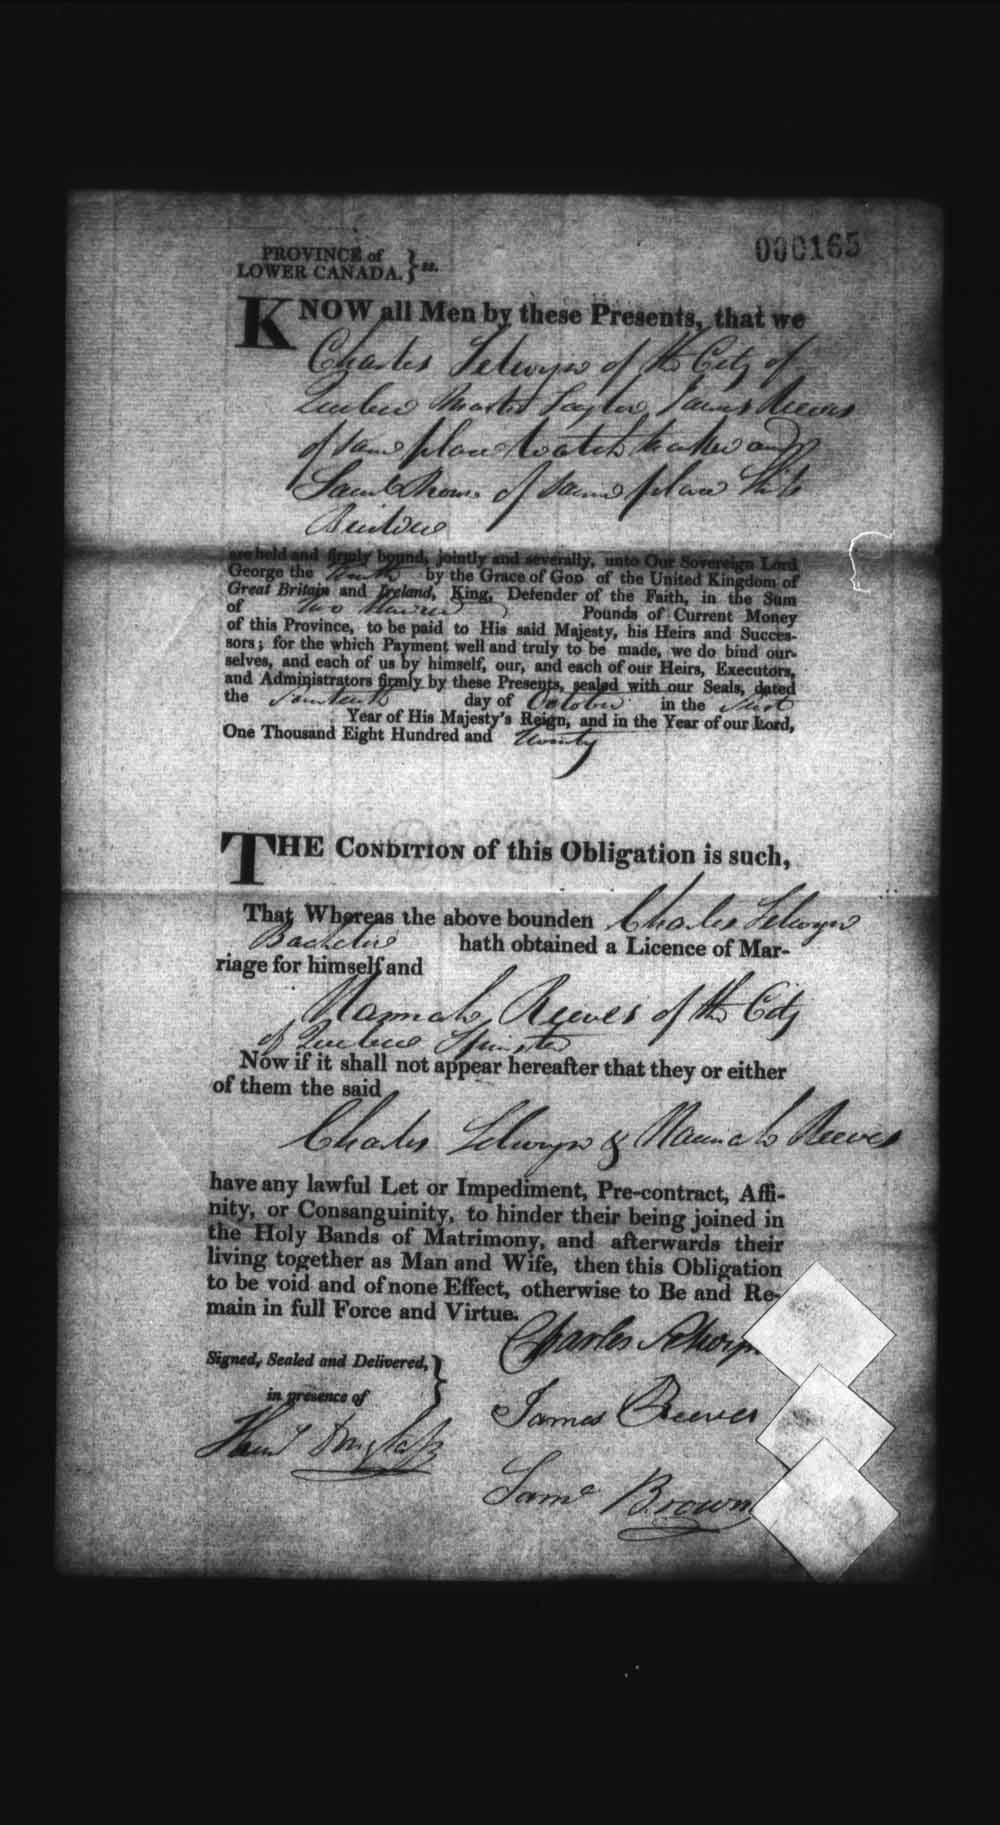 000165
PROVINCE of
LOWER CANADA. } ss.
KNOW all Men by these Presents, that we
Charles Selwyn of the City of
Quebec Master Taylor, James Reeves
of same place Watch maker and
Saml Brown of same place Ship
Builder
are held and firmly bound, jointly and severally, unto Our Sovereign Lord
George the Fourth by the Grace of GOD of the United Kingdom of
Great Britain and Ireland, King, Defender of the Faith, in the Sum
of Two Hundred Pounds of Current Money
of this Province, to be paid to His said Majesty, his Heirs and Succes-
sors; for the which Payment well and truly to be made, we do bind our-
selves, and each of us by himself, our, and each of our Heirs, Executors,
and Administrators firmly by these Presents, sealed with our Seals, dated
the day of October in the First
Year of His Majesty's Reign, and in the Year of our Lord,
One Thousand Eight Hundred and Twenty
THE CONDITION of this Obligation is such,
That Whereas the above bounden Charles Selwyn
Bachelor hath obtained a Licence of Mar-
riage for himself and
Hannah Reeves of the City
of Quebec Spinster
Now if it shall not appear hereafter that they or either
of them the said
Charles Selwyn & Hannah Reeves
have any lawful Let or Impediment, Pre-contract, Affi-
nity, or Consanguinity, to hinder their being joined in
the Holy Bands of Matrimony, and afterwards their
living together as Man and Wife, then this Obligation
to be void and of none Effect, otherwise to Be and Re-
main in full Force and Virtue.
Charles Selwyn
Signed, Sealed and Delivered, }
in presence of
James Reeves
Saml Brown